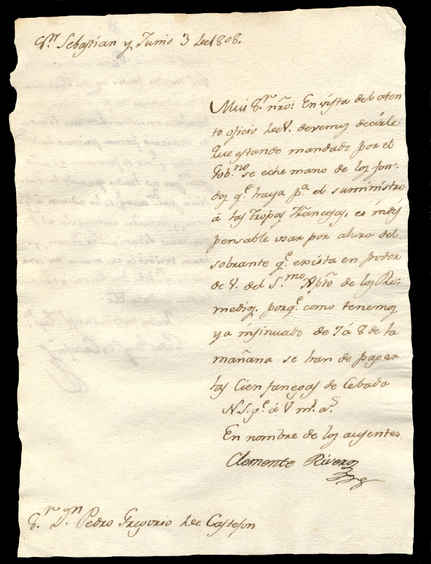 Sn. Sebastian y Junio 3 de 1808.
Mui Sr. nro: En vista del aten
to oficio de V. devemos decirle
que estando mandado por el
Gobno. se eche mano de los fon-
dos q. haya pa. el suministro
á las Tropas Francesas, es indis
pensable usar por ahora del
sobrante q. exista en poder
de V. del Smo. de los Re-
medios, porq. como tenemos
ya insinuado de 7 á 8 de la
mañana se han de pagar
las Cien fanegas de Cebada
N. S. gue. á V. ms. as.
En nombre de los ausentes
Clemente Rivero
Sr. Dn. Pedro Gregorio de Castejon